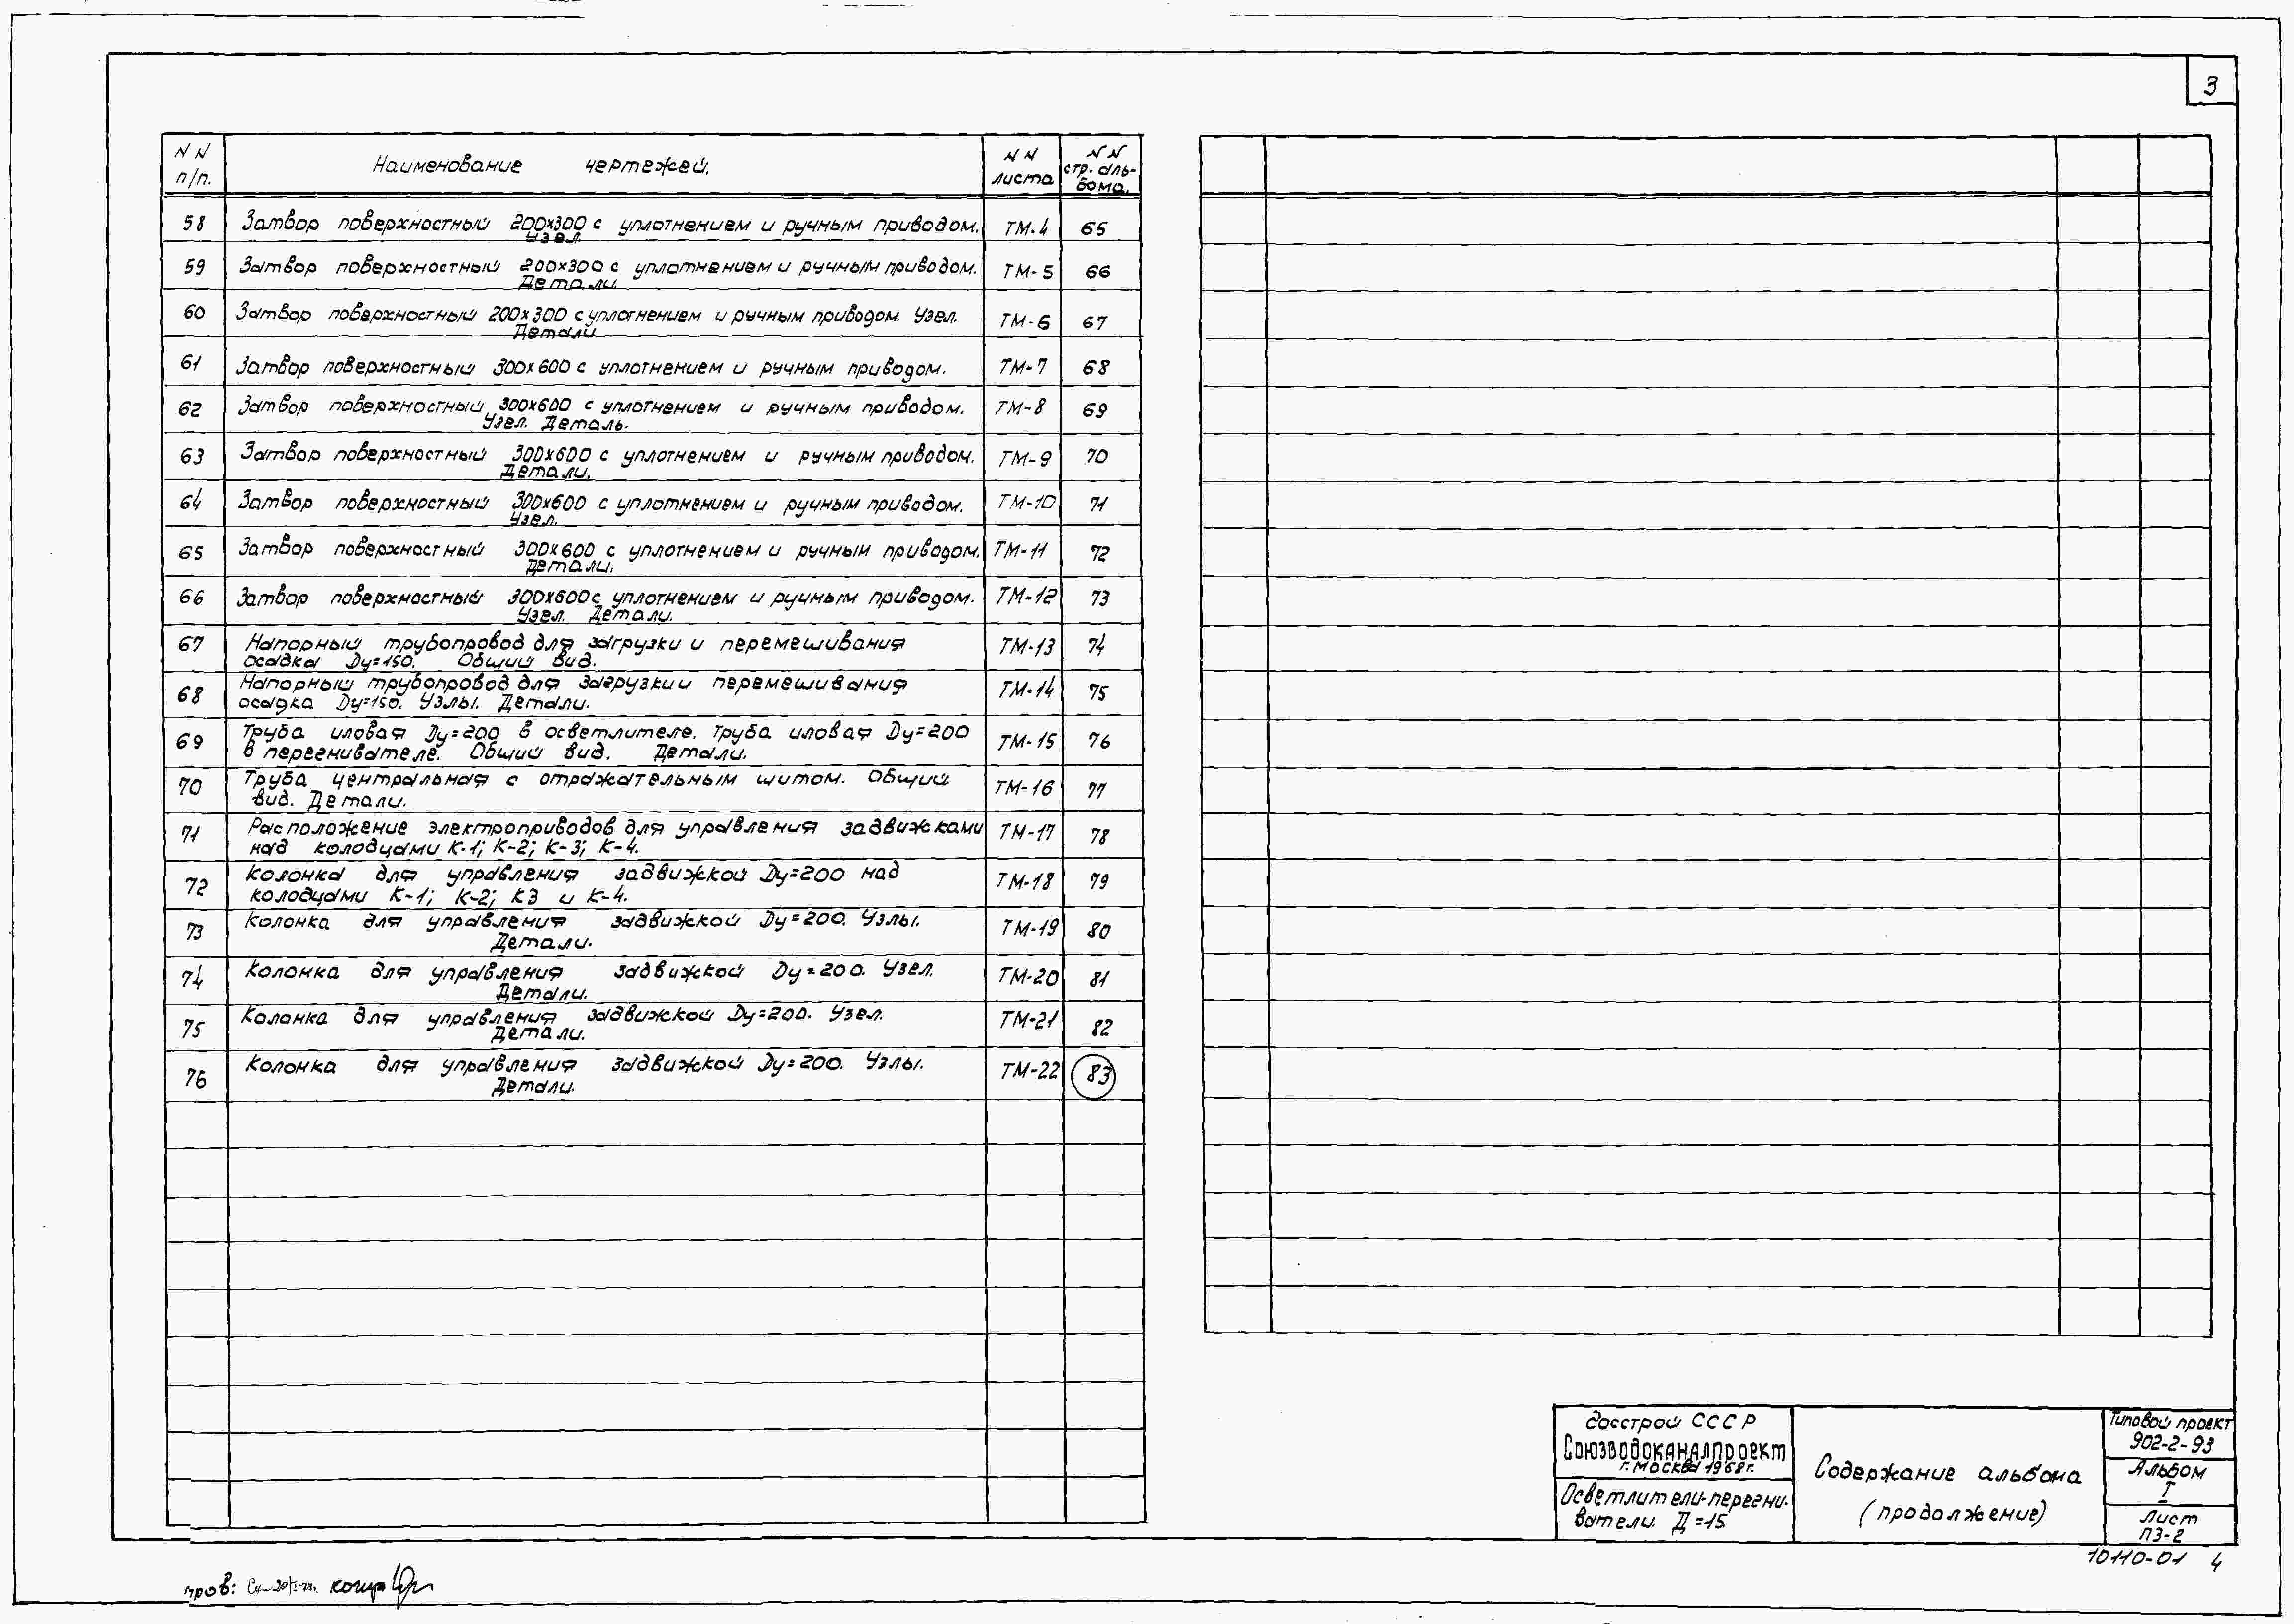 3
N N
п/п.
Наименование чертежей.
N N
листа
N N
стр. аль-
бома.
58 Затвор поверхностный 200х300 с уплотнением и ручным приводом. ТМ-4 65
Узел.
59 Затвор поверхностный 200х300 с уплотнением и ручным приводом. ТМ-5 66
Детали.
60 Затвор поверхностный 200х300 с уплотнением и ручным приводом. Узел. ТМ-6 67
Детали
61 Затвор поверхностный 300х600 с уплотнением и ручным приводом. ТМ-7 68
62 Затвор поверхностный 300х600 с уплотнением и ручным приводом. ТМ-8 69
Узел. Деталь.
63 Затвор поверхностный 300х600 с уплотнением и ручным приводом. ТМ-9 70
Детали.
64 Затвор поверхностный 300х600 с уплотнением и ручным приводом. ТМ-10 71
Узел.
65 Затвор поверхностный 300х600 с уплотнением и ручным приводом. ТМ-11 72
Детали.
66 Затвор поверхностный 300х600 с уплотнением и ручным приводом. ТМ-12 73
Узел. Детали.
67 Напорный трубопровод для загрузки и перемешивания ТМ-13 74
осадка Dу=150. Общий вид.
68 Напорный трубопровод для загрузки и перемешивания ТМ-14 75
осадка Dу=150. Узлы. Детали.
69 Труба иловая Dу=200 в осветлителе. Труба иловая Dу=200 ТМ-15 76
в перегнивателе. Общий вид. Детали.
70 Труба центральная с отражательным щитом. Общий ТМ-16 77
вид. Детали.
71 Расположение электроприводов для управления задвижками ТМ-17 78
над колодцами К-1; К-2; К-3; К-4.
72 Колонка для управления задвижкой Dу=200 над ТМ-18 79
колодцами К-1; К-2; К3 и К-4.
73 Колонка для управления задвижкой Dу=200. Узлы. ТМ-19 80
Детали.
74 Колонка для управления задвижкой Dу=200. Узел. ТМ-20 81
Детали.
75 Колонка для управления задвижкой Dу=200. Узел. ТМ-21 82
Детали.
76 Колонка для управления задвижкой Dу=200. Узлы. ТМ-22 83
Детали.
Госстрой СССР
Союзводоканалпроект
г. Москва 1968г.
Осветлители-перегни-
ватели. Д=15.
Содержание альбома
(продолжение)
Типовой проект
902-2-93
Альбом
I
Лист
ПЗ-2
10110-01 4
пров: